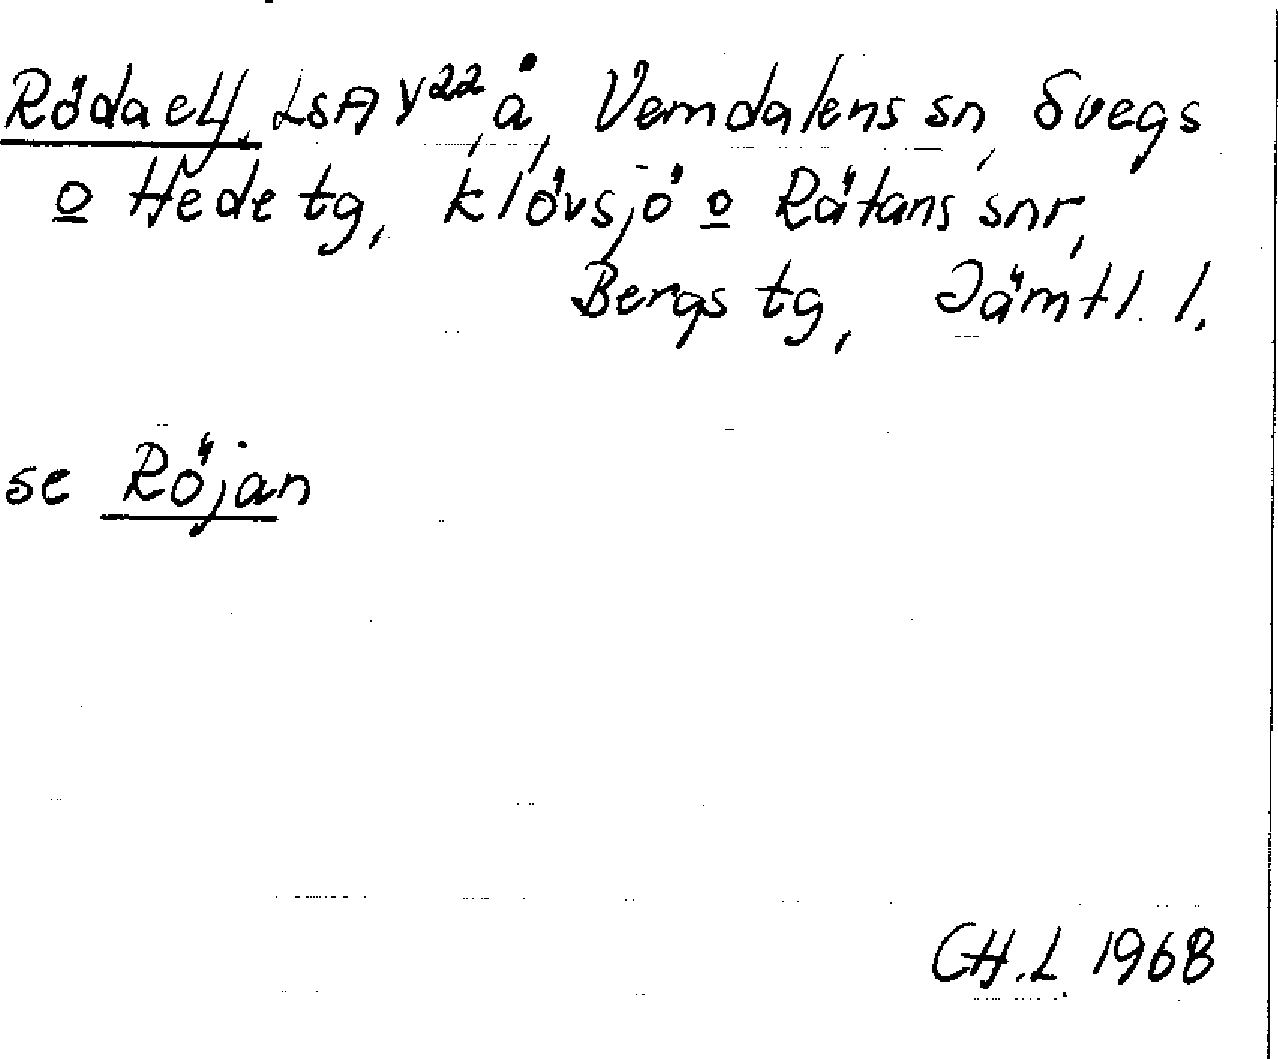 Rödaelf, LSA Y22, å, Vemdalens sn, Svegs
o Hede tg, Klövsjö o Rätans snr,
Bergs tg, Jämtl. l.
se Röjan
CH.L 1968